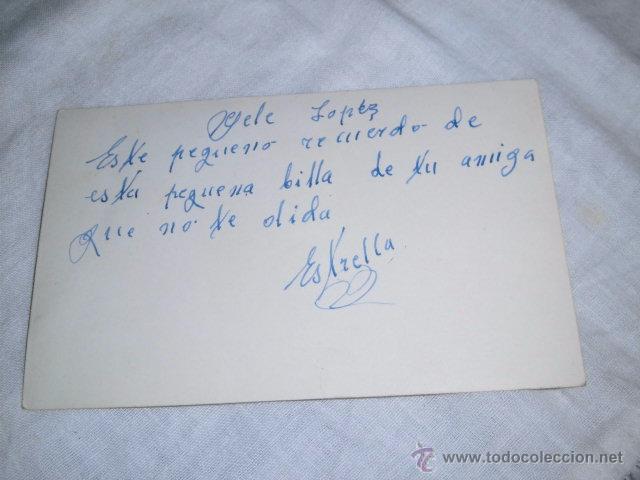 Yele Lopez
Este pequeno recuerdo de
esta pequena billa de tu amiga
Que no te olida
Estrella
todocoleccion
www.todocoleccion.net